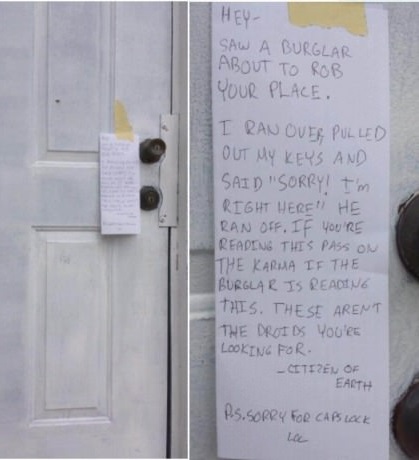 HEY-
SAW A BURGLAR
ABOUT TO ROB
YOUR PLACE.
I RAN OVER, PULLED
OUT MY KEYS AND
SAID "SORRY! I'm
RIGHT HERE" HE
RAN OFF. IF YOU'RE
READING THIS PASS ON
THE KARMA IF THE
BURGLAR IS READING
THIS. THESE AREN'T
THE DROIDS YOU'RE
LOOKING FOR.
-CITIZEN OF
EARTH
P.S. SORRY FOR CAPS LOCK
LOL